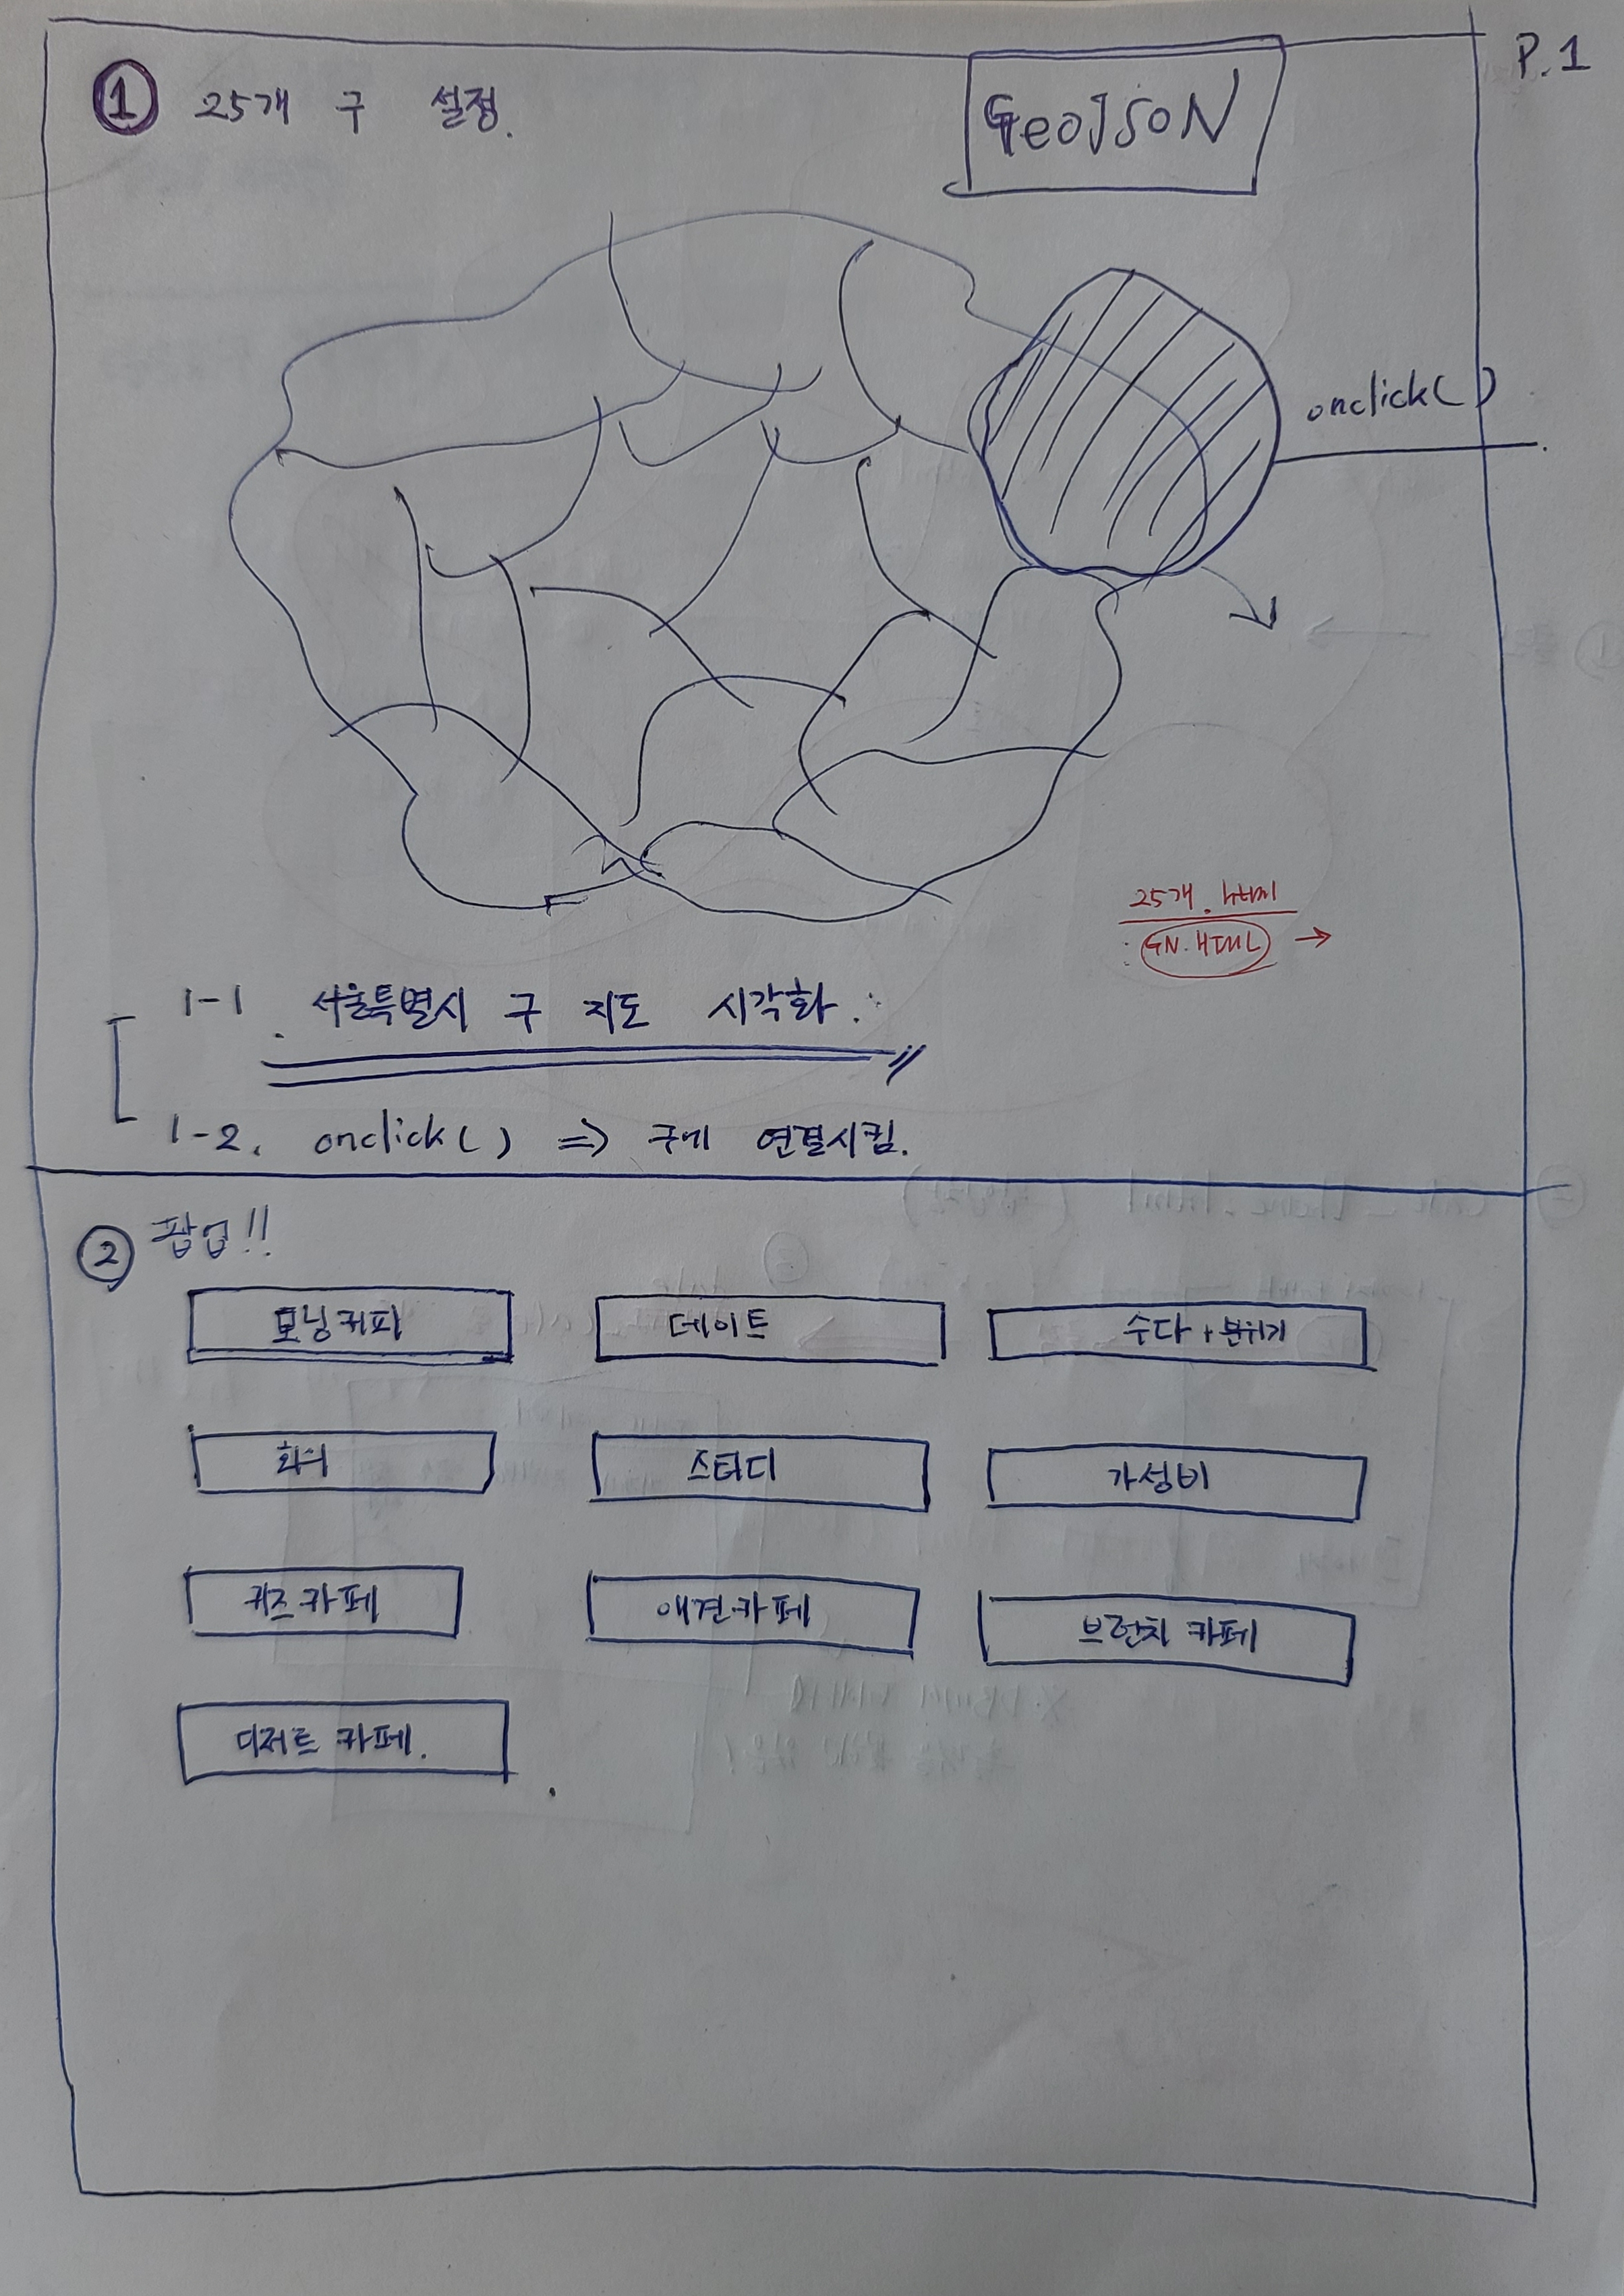 P.1
① 25개 구 설정.
GeoJSON
onclick( )
25개. html
: GN.HTML →
1-1. 서울특별시 구 지도 시각화.
1-2. onclick( ) => 구에 연결시킴.
② 팝업!!
모닝커피
데이트
수다 + 분위기
회의
스터디
가성비
퀴즈카페
애견카페
브런치 카페
디저트 카페.